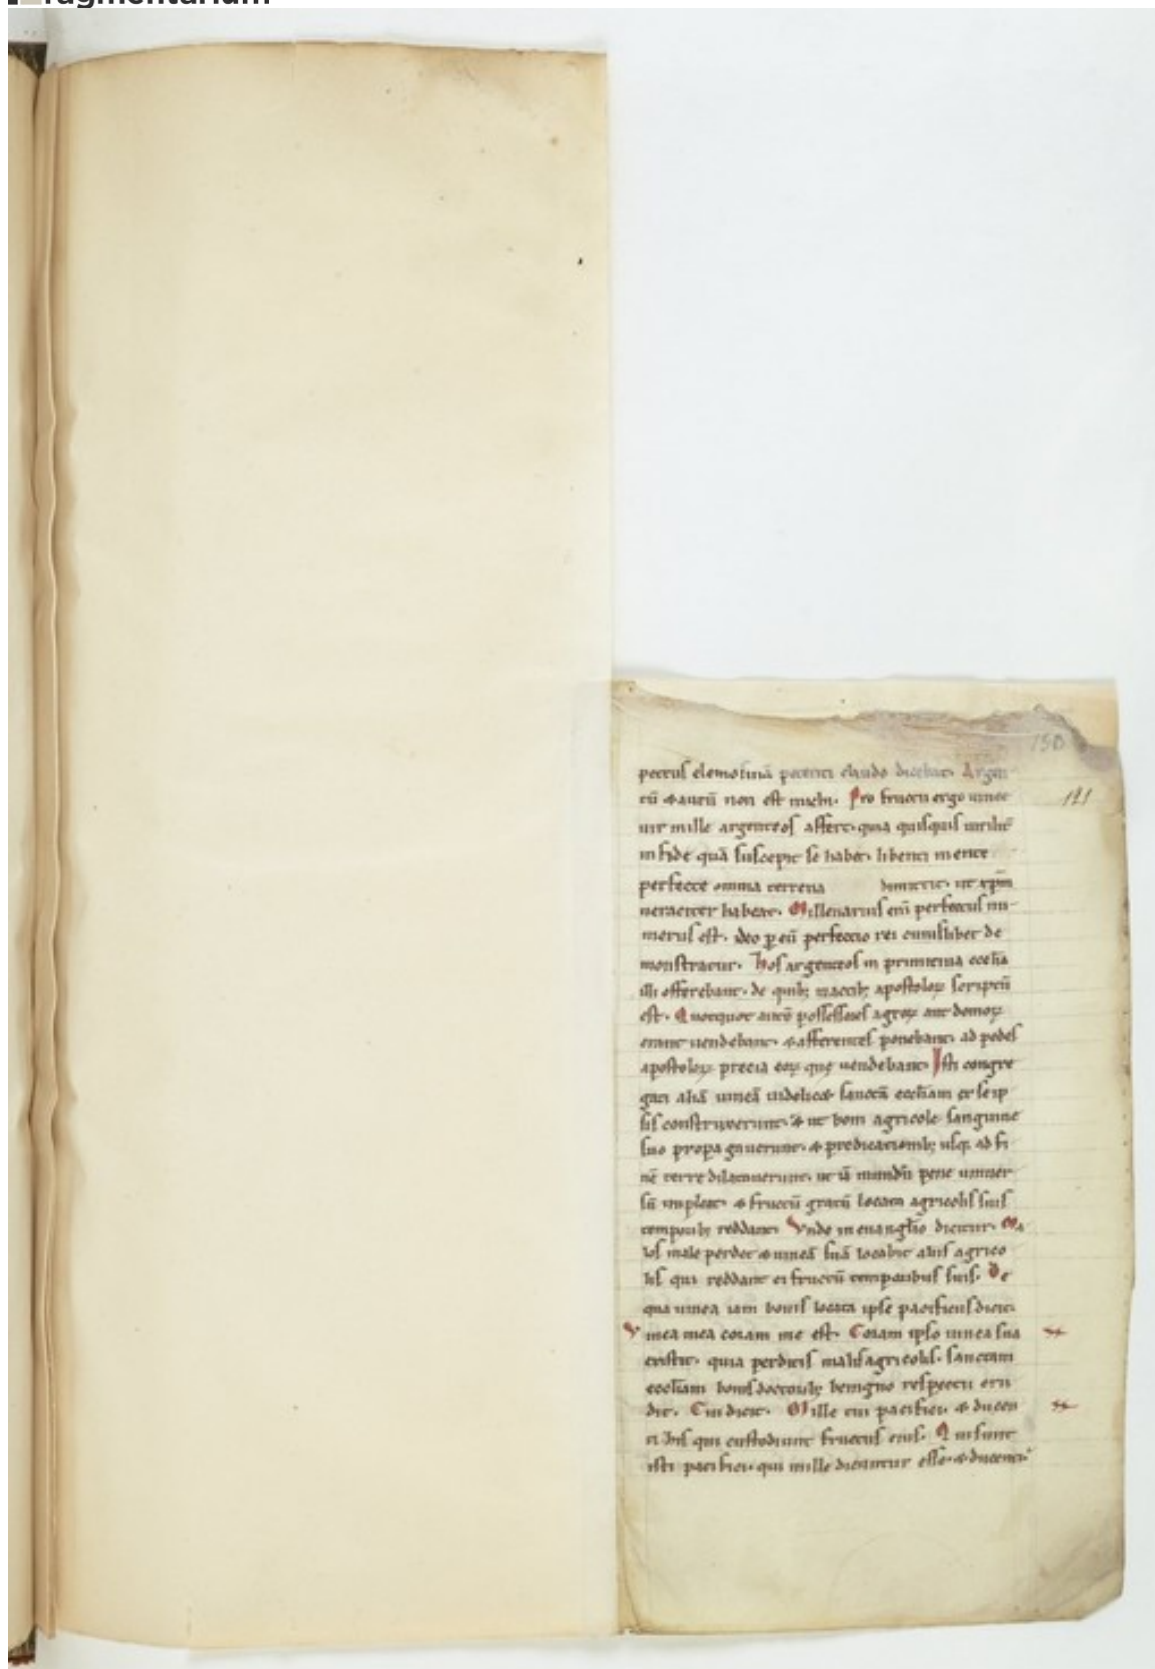 ragmentarium
150
petrus elemosinā petenti claudo dicebat. Argen
tū & aurū non est michi. Pro fructu ergo uineę
121
uir mille argenteos affert. quia quisquis uirilit̄
in fide quā suscepit se habet. libenti mente
perfecte omnia terrena dimittit. ut xp̄m
ueraciter habeat. Millenarius eni perfectus nu
merus est. ideo p eū perfectio rei cuiuslibet de
monstratur. Hos argenteos in primitiua ecclīa
illi offerebant. de quib; in actib; apostoloꝝ scriptū
est. Quotquot autē possessores agroꝝ aut domoꝝ
erant uendebant. & afferentes ponebant. ad pedes
apostoloꝝ precia eoꝝ quę uendebant. Isti congre
gati aliā uineā uidelicet sanctā ecclīam ex se ip
sis construxerunt. & ut boni agricole sanguine
suo propagauerunt. & predicationib; usq; ad fi
nē terre dilatauerunt. ut iā mundū pene uniuer
sū impleat. & fructū gratū locata agricolis suis
temporib; reddant. Vnde in euangl̄io dicitur. Ma
los male perdet & uineā suā locabit aliis agrico
lis qui reddant ei fructū temporibus suis. De
qua uinea iam bonis locata ipse pacificus dicit.
Vinea mea coram me est. Coram ipso uinea sua
existit. quia perditis malis agricolis. sanctam
ecclīam bonis doctorib; benigno respectu eru
dit. Cui dicit. Mille tui pacifici. & ducen
ti his qui custodiunt fructus eius. Qui sunt
isti pacifici. qui mille dicuntur esse. & ducenti.